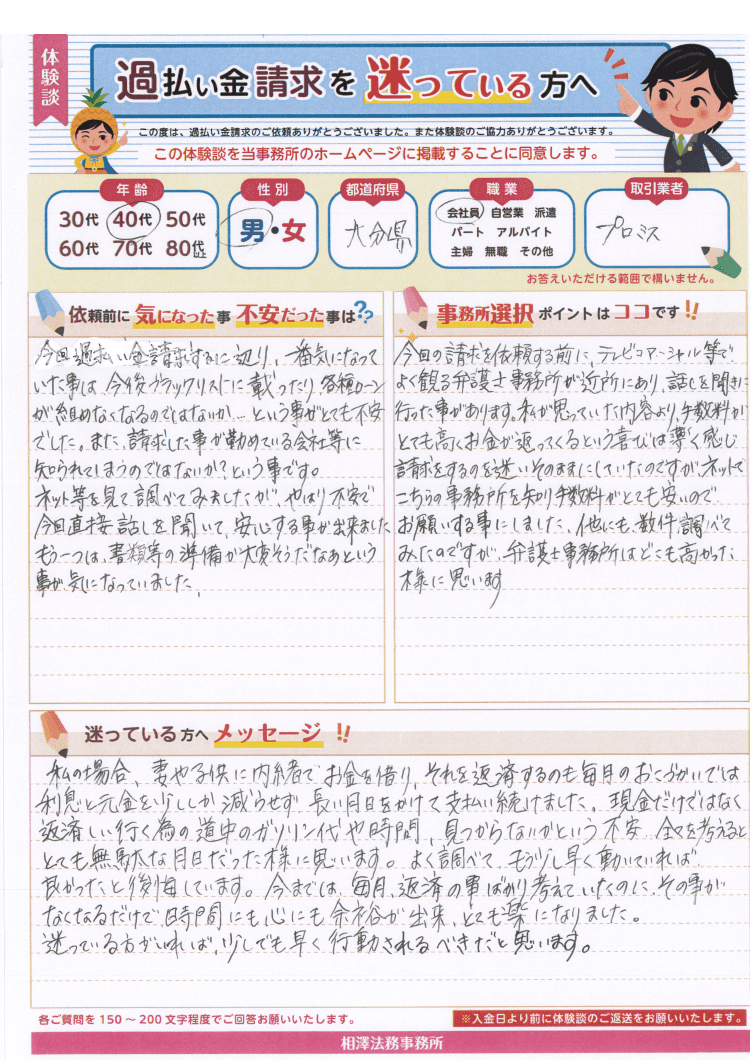 体験談
過払い金請求を迷っている方へ
この度は、過払い金請求のご依頼ありがとうございました。また体験談のご協力ありがとうございます。
この体験談を当事務所のホームページに掲載することに同意します。
年齢 性別 都道府県 職業 取引業者
30代 40代 50代
60代 70代 80代以上
男・女
大分県
会社員 自営業 派遣
パート アルバイト
主婦 無職 その他
プロミス
お答えいただける範囲で構いません。
依頼前に気になった事 不安だった事は??
今回過払い金請求するに辺り、一番気になって
いた事は、今後ブラックリストにに載ったり、各種ローン
が組めなくなるのではないか…という事がとても不安
でした。また、請求した事が勤めている会社等に
知られてしまうのではないか?という事です。
ネット等を見て調べてみましたが、やはり不安で
今回直接話しを聞いて、安心する事が出来ました
もう一つは、書類等の準備が大変そうだなぁという
事が気になっていました。
事務所選択ポイントはココです!!
今回の請求を依頼する前に、テレビコマーシャル等で
よく観る弁護士事務所が近所にあり、話しを聞きに
行った事があります。私が思っていた内容より、手数料が
とても高くお金が返ってくるという喜びは薄く感じ
請求をするのを迷いそのままにしていたのですが、ネットで
こちらの事務所を知り手数料がとても安いので
お願いする事にしました、他にも、数件調べて
みたのですが、弁護士事務所はどこも高かった
様に思います
迷っている方へメッセージ!!
私の場合、妻や子供に内緒でお金を借り、それを返済するのも毎月のおこづかいでは
利息と元金を少ししか減らせず、長い月日をかけて支払い続けました。現金だけではなく
返済しい行く為の道中のガソリン代や時間、見つからないかという不安、全てを考えると
とても無駄な月日だった様に思います。よく調べて、もう少し早く動いていれば
良かったと後悔しています。今までは、毎月、返済の事ばかり考えていたのに、その事が
なくなるだけで、時間にも心にも余裕が出来、とても楽になりました。
迷っている方がいれば、少しでも早く行動されるべきだと思います。
各ご質問を150～200文字程度でご回答お願いいたします。
※入金日より前に体験談のご返送をお願いいたします。
相澤法務事務所